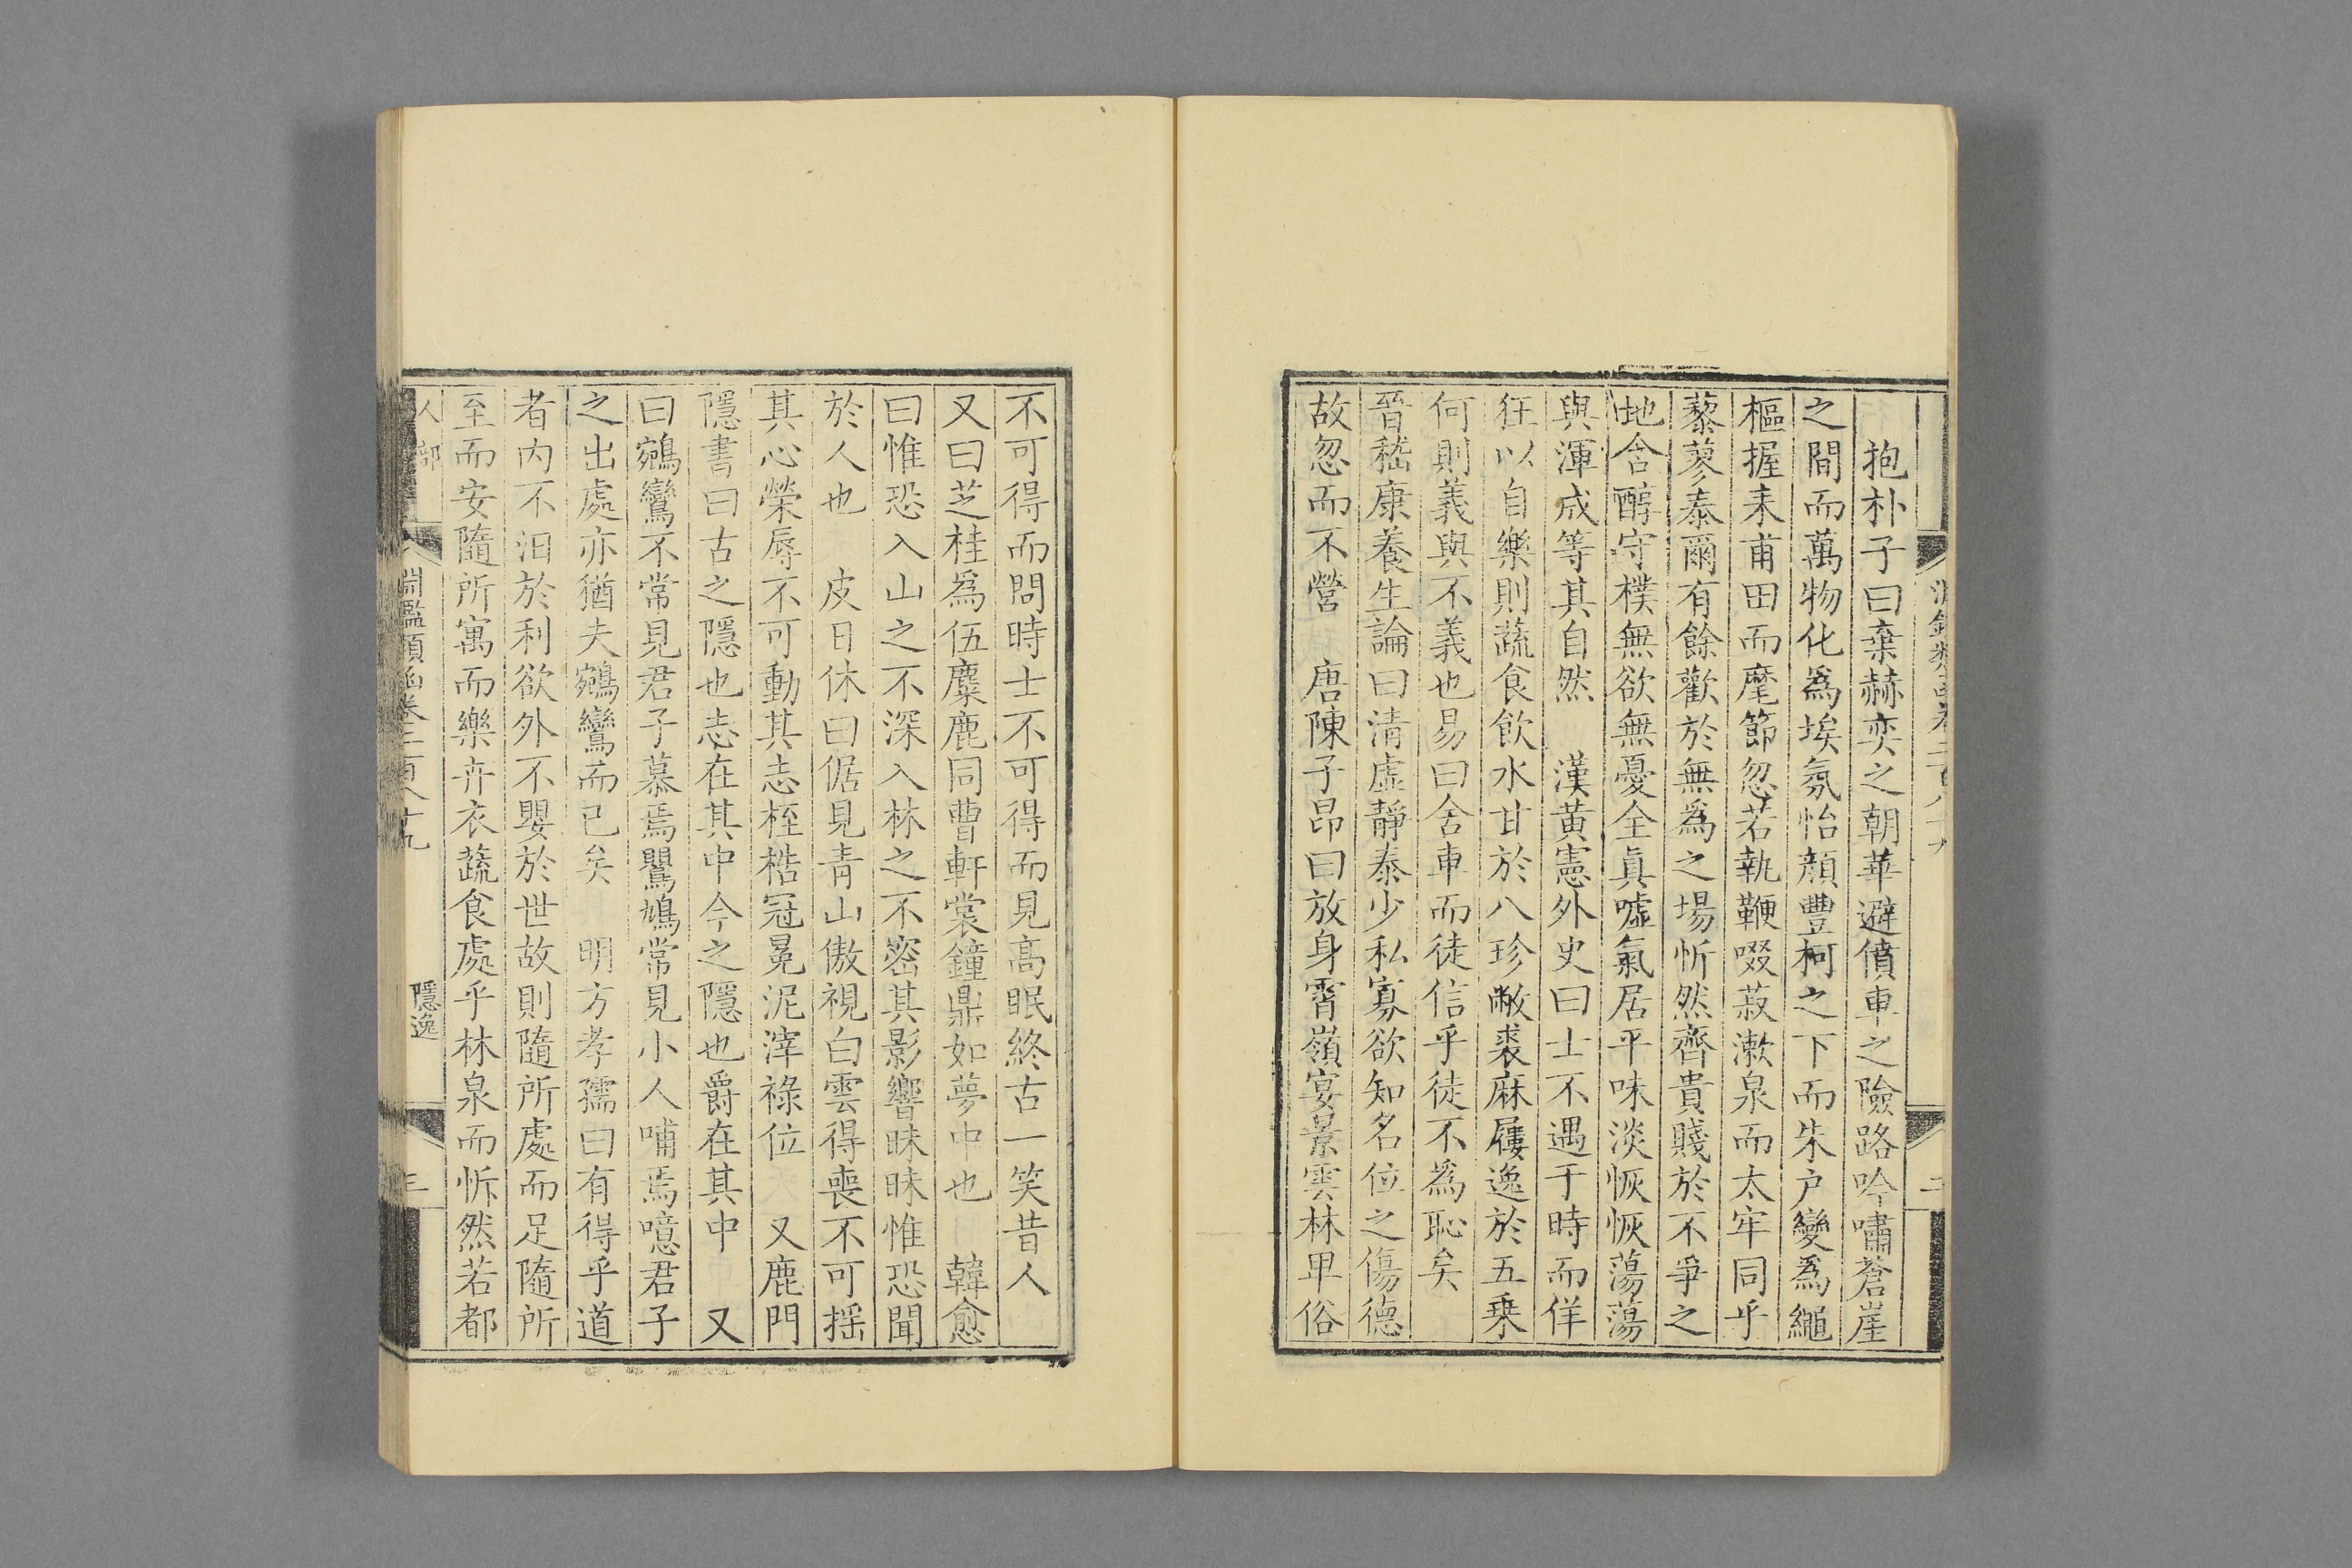 抱朴子曰棄赫奕之朝華避僨車之險路吟嘯蒼崖
之間而萬物化爲埃氛怡顏豐柯之下而朱户變爲繩
樞握耒甫田而麾節忽若執鞭啜菽漱泉而太牢同乎
藜蓼泰爾有餘歡於無爲之場忻然齊貴賤於不爭之
地含醇守樸無欲無憂全眞噓氣居平味淡恢恢蕩蕩
與渾成等其自然　漢黃憲外史曰士不遇于時而佯
狂以自樂則蔬食飲水甘於八珍敝裘麻屨逸於五乗
何則義與不義也易曰舍車而徒信乎徒不爲恥矣
晉嵇康養生論曰清虛靜泰少私寡欲知名位之傷德
故忽而不營　唐陳子昂曰放身霄嶺宴景雲林甲俗
不可得而問時士不可得而見高眠終古一笑昔人
又曰芝桂爲伍麋鹿同曹軒裳鐘鼎如夢中也　韓愈
曰惟恐入山之不深入林之不密其影響昧昧惟恐聞
於人也　皮日休曰倨見青山傲視白雲得喪不可摇
其心榮辱不可動其志桎梏冠冕泥滓祿位　又鹿門
隱書曰古之隱也志在其中今之隱也爵在其中　又
曰鵷鸞不常見君子慕焉鸎鳩常見小人哺焉噫君子
之出處亦猶夫鵷鸞而已矣　明方孝孺曰有得乎道
者内不汩於利欲外不嬰於世故則隨所處而足隨所
至而安隨所寓而樂卉衣蔬食處乎林泉而忻然若都
人部 淵鑑類函卷二百八十九 隱逸 三